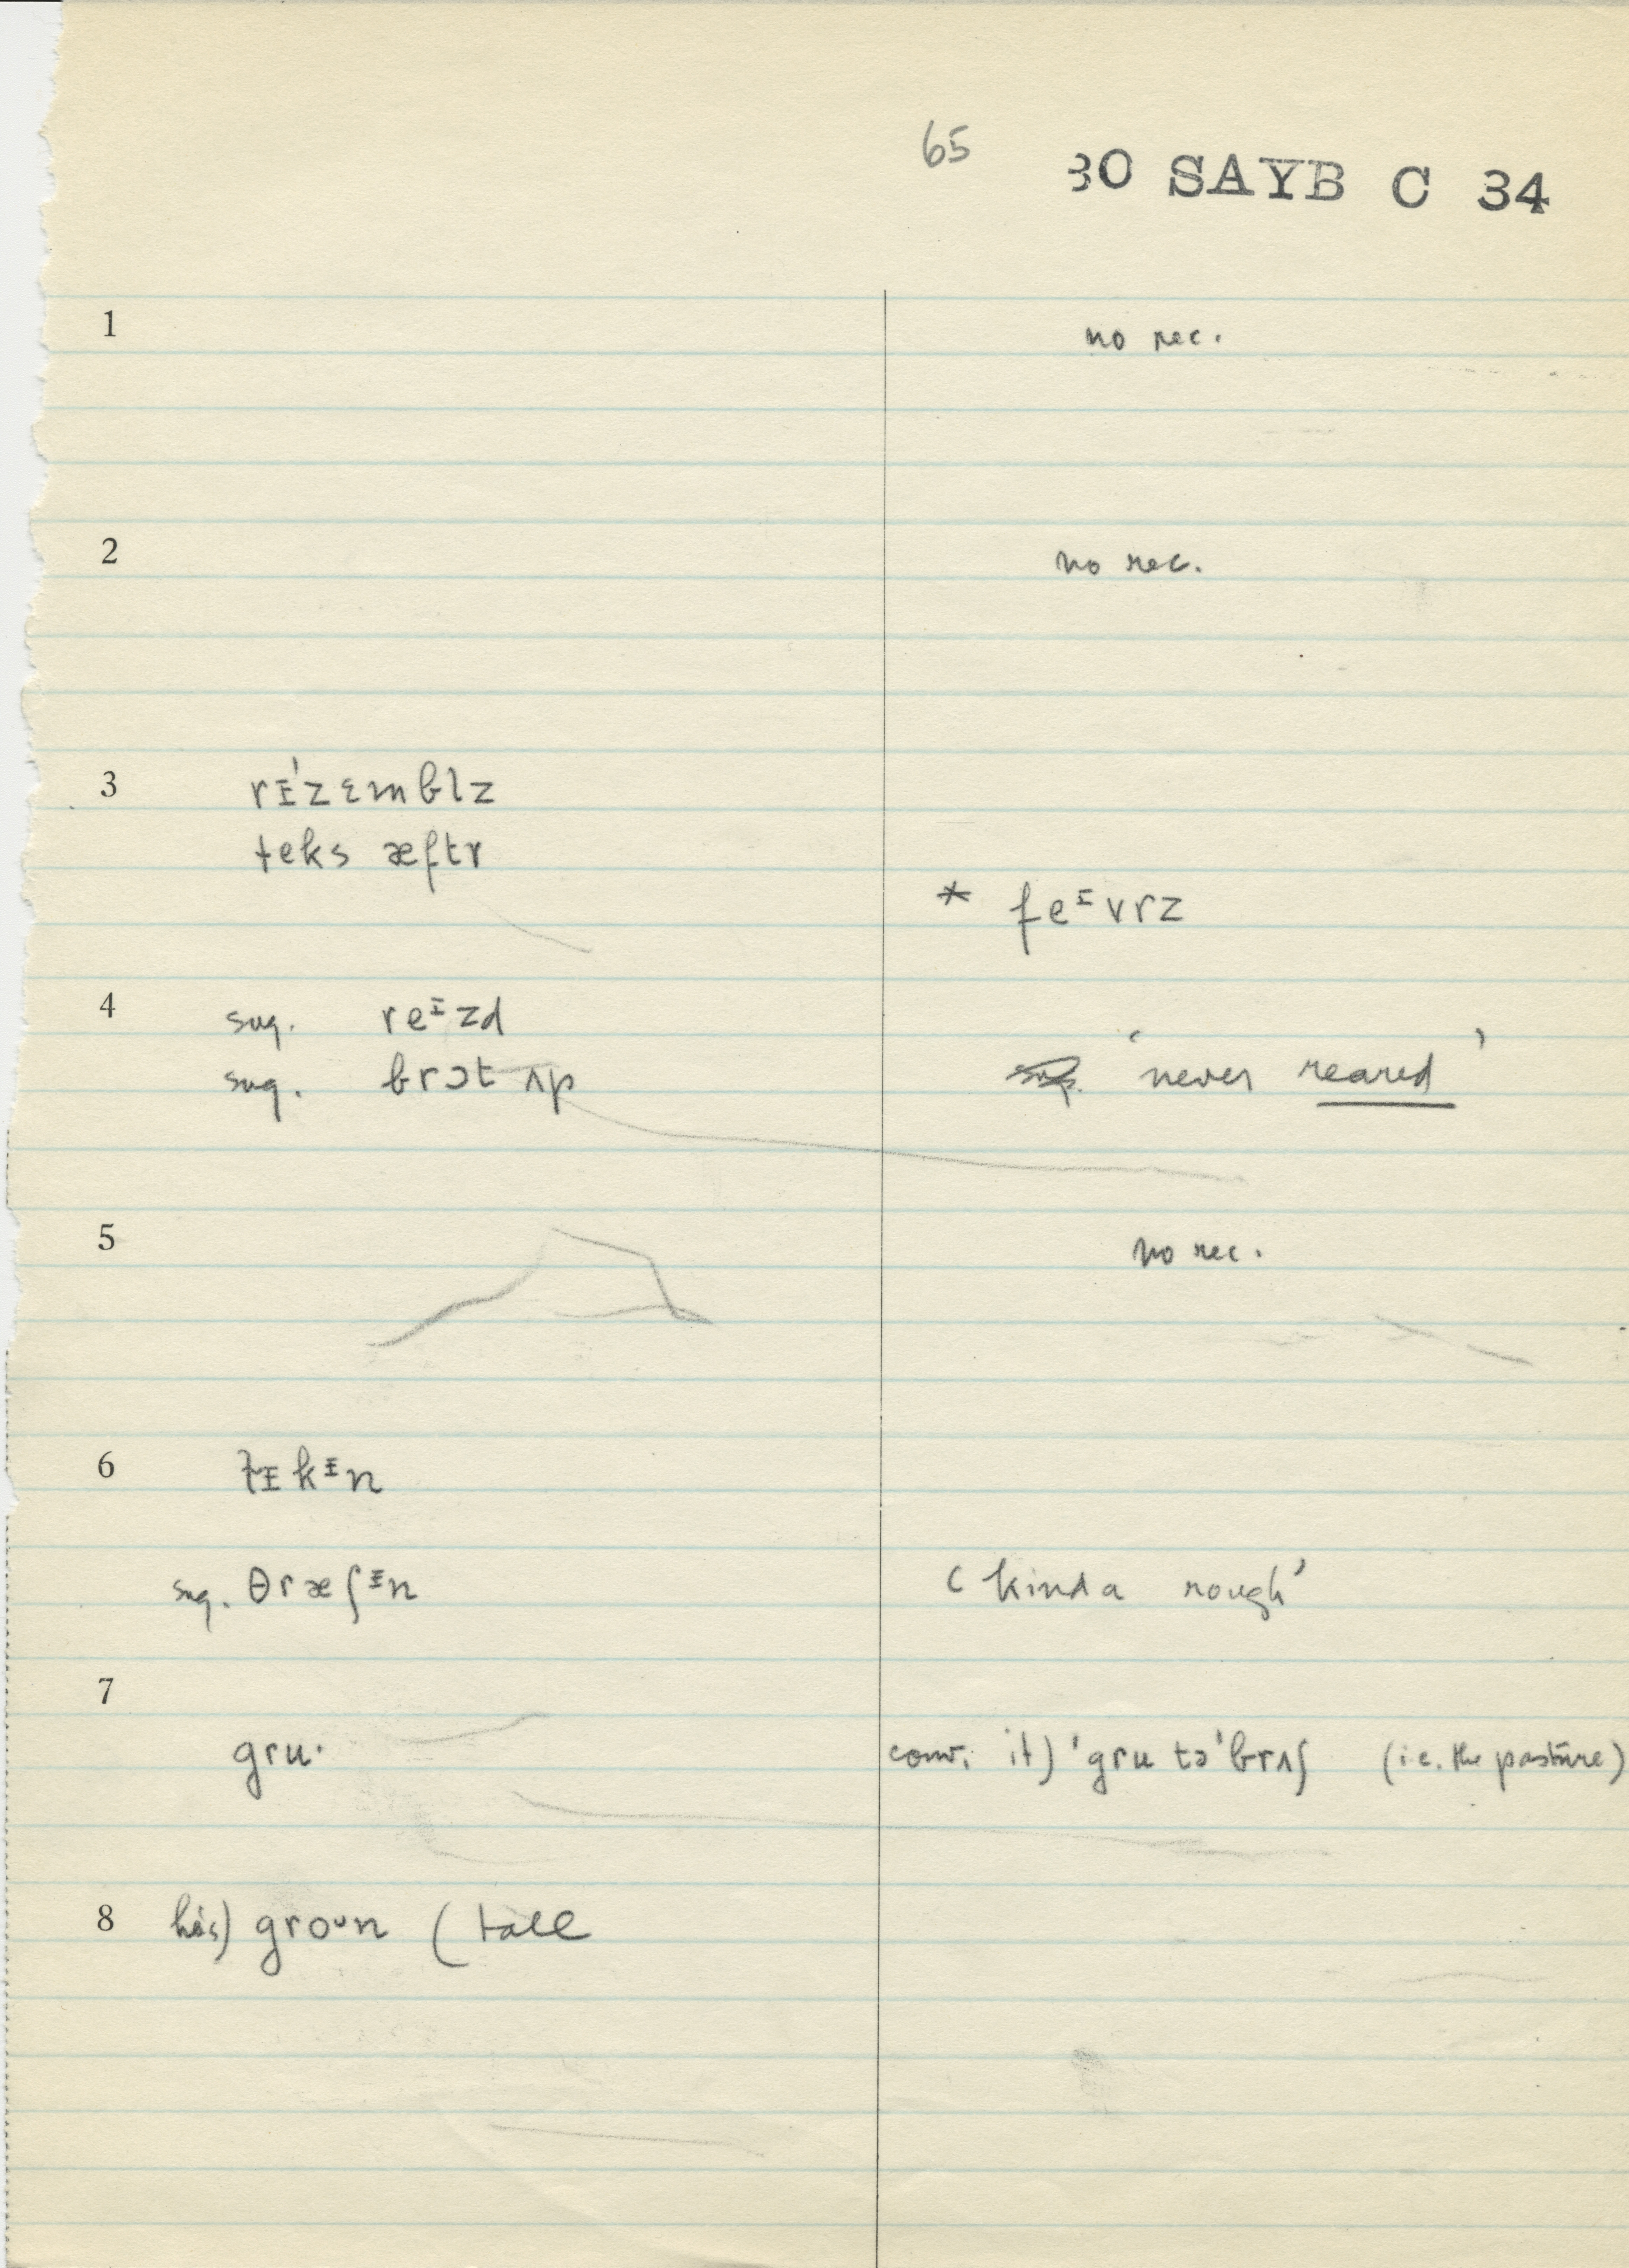 65 30 SAYB C 34
1 no rec.
2 no rec.
3 rɪ'zɛmblz
teks æftr
* feᶦvrz
4 sug. reᶦzd
sug. brɔt ʌp 'never reared'
5 no rec.
6 lɪkᶦn
sug. θræʃᶦn 'kinda rough'
7
gru· conv. it) 'gru tə'brʌʃ (i.e. the pasture)
8 he's) groᶷn (tall